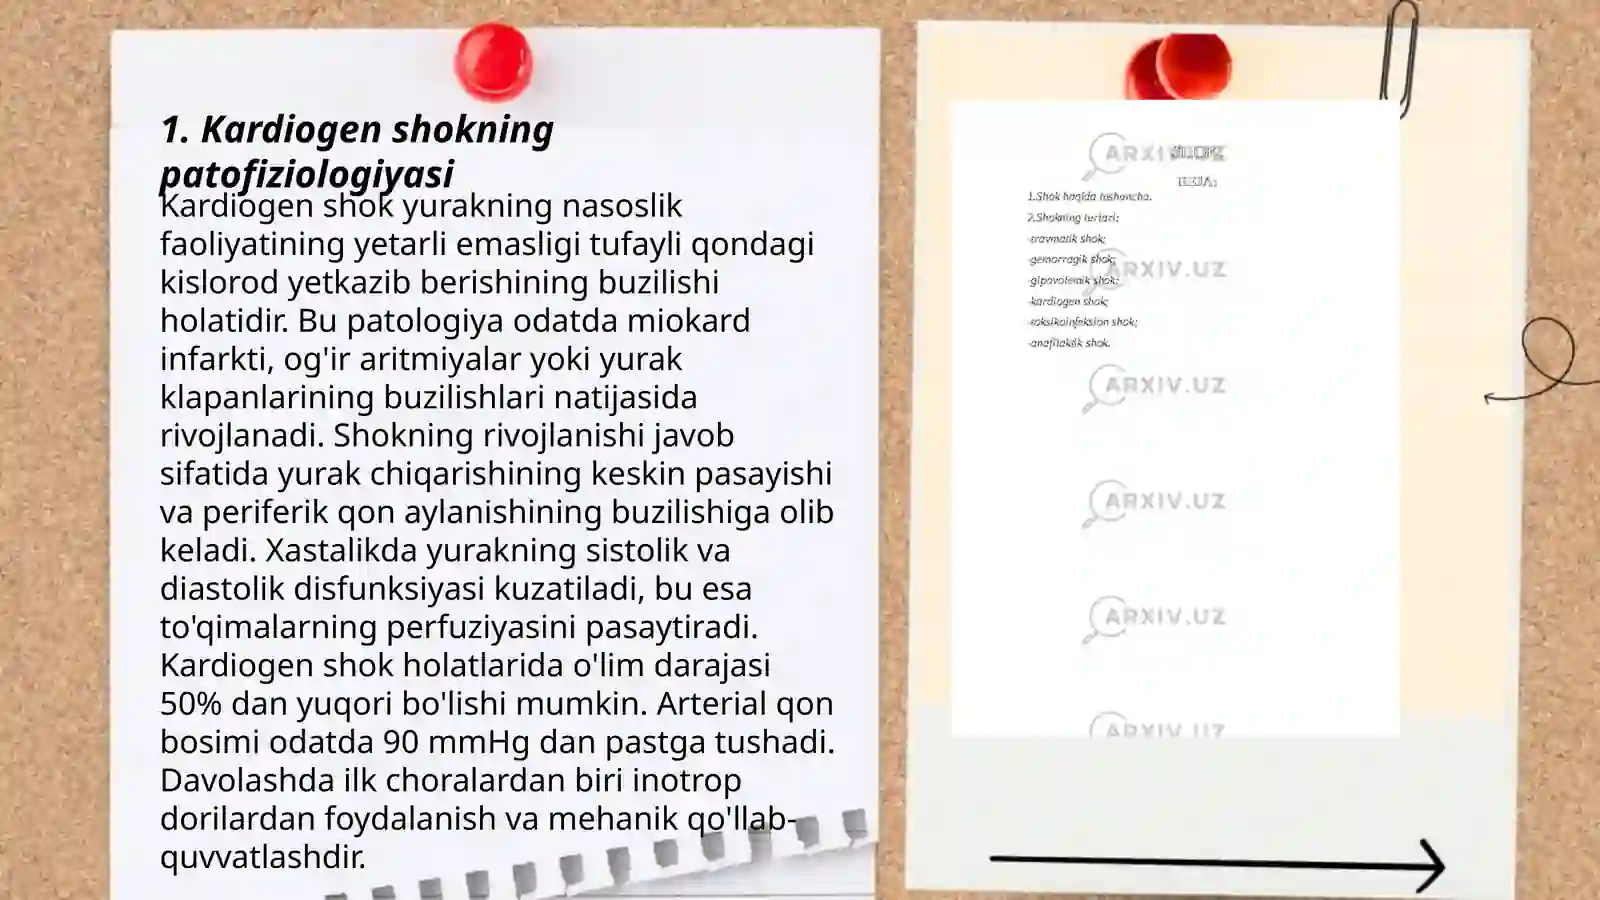 1. Kardiogen shokning
patofiziologiyasi
Kardiogen shok yurakning nasoslik
faoliyatining yetarli emasligi tufayli qondagi
kislorod yetkazib berishining buzilishi
holatidir. Bu patologiya odatda miokard
infarkti, og'ir aritmiyalar yoki yurak
klapanlarining buzilishlari natijasida
rivojlanadi. Shokning rivojlanishi javob
sifatida yurak chiqarishining keskin pasayishi
va periferik qon aylanishining buzilishiga olib
keladi. Xastalikda yurakning sistolik va
diastolik disfunksiyasi kuzatiladi, bu esa
to'qimalarning perfuziyasini pasaytiradi.
Kardiogen shok holatlarida o'lim darajasi
50% dan yuqori bo'lishi mumkin. Arterial qon
bosimi odatda 90 mmHg dan pastga tushadi.
Davolashda ilk choralardan biri inotrop
dorilardan foydalanish va mehanik qo'llab-
quvvatlashdir.
REJA:
1.Shok haqida tushancha.
2.Shokning turlari:
-travmatik shok;
-gemorragik shok;
ARXIV.UZ
-gipovolemik shok;
-kardiogen shok;
-toksikoinfeksion shok;
-anafilaktik shok.
ARXIV.UZ
ARXIV.UZ
ARXIV.UZ
ARXIV.UZ